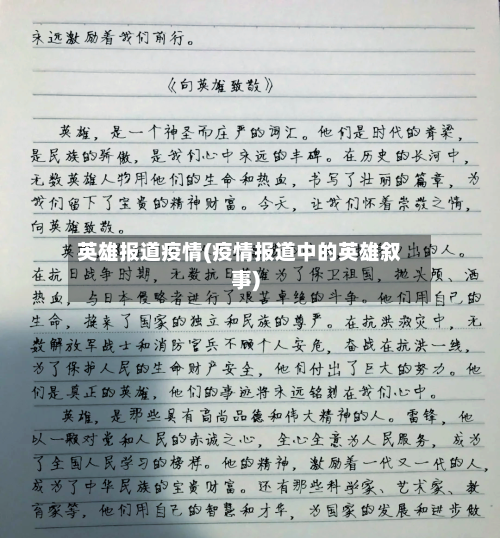 永远激励着我们前行。
《向英雄致敬》
英雄，是一个神圣而庄严的词汇。他们是时代的脊梁，
是民族的骄傲，是我们心中永远的丰碑。在历史的长河中，
无数英雄人物用他们的生命和热血，书写了壮丽的篇章，为
我们留下了宝贵的精神财富。今天，让我们怀着崇敬之情，
向英雄致敬。
英雄报道疫情(疫情报道中的英雄叙
事)
英 出的人。
在抗日战争时期，无数抗日 为了保卫祖国，抛头颅、洒
热血，与日本侵略者进行了艰苦卓绝的斗争。他们用自己的
生命，换来了国家的独立和民族的尊严。在抗洪救灾中，无
数解放军战士和消防官兵不顾个人安危，奋战在抗洪一线，
为了保护人民的生命财产安全，他们付出了巨大的努力。他
们是真正的英雄，他们的事迹将永远铭刻在我们心中。
英雄，是那些具有高尚品德和伟大精神的人。雷锋，他
以一颗对党和人民的赤诚之心，全心全意为人民服务，成为
了全国人民学习的榜样。他的精神，激励着一代又一代的人，
成为了中华民族的宝贵财富。还有那些科学家、艺术家、教
育家等，他们用自己的智慧和才华，为国家的发展和进步做